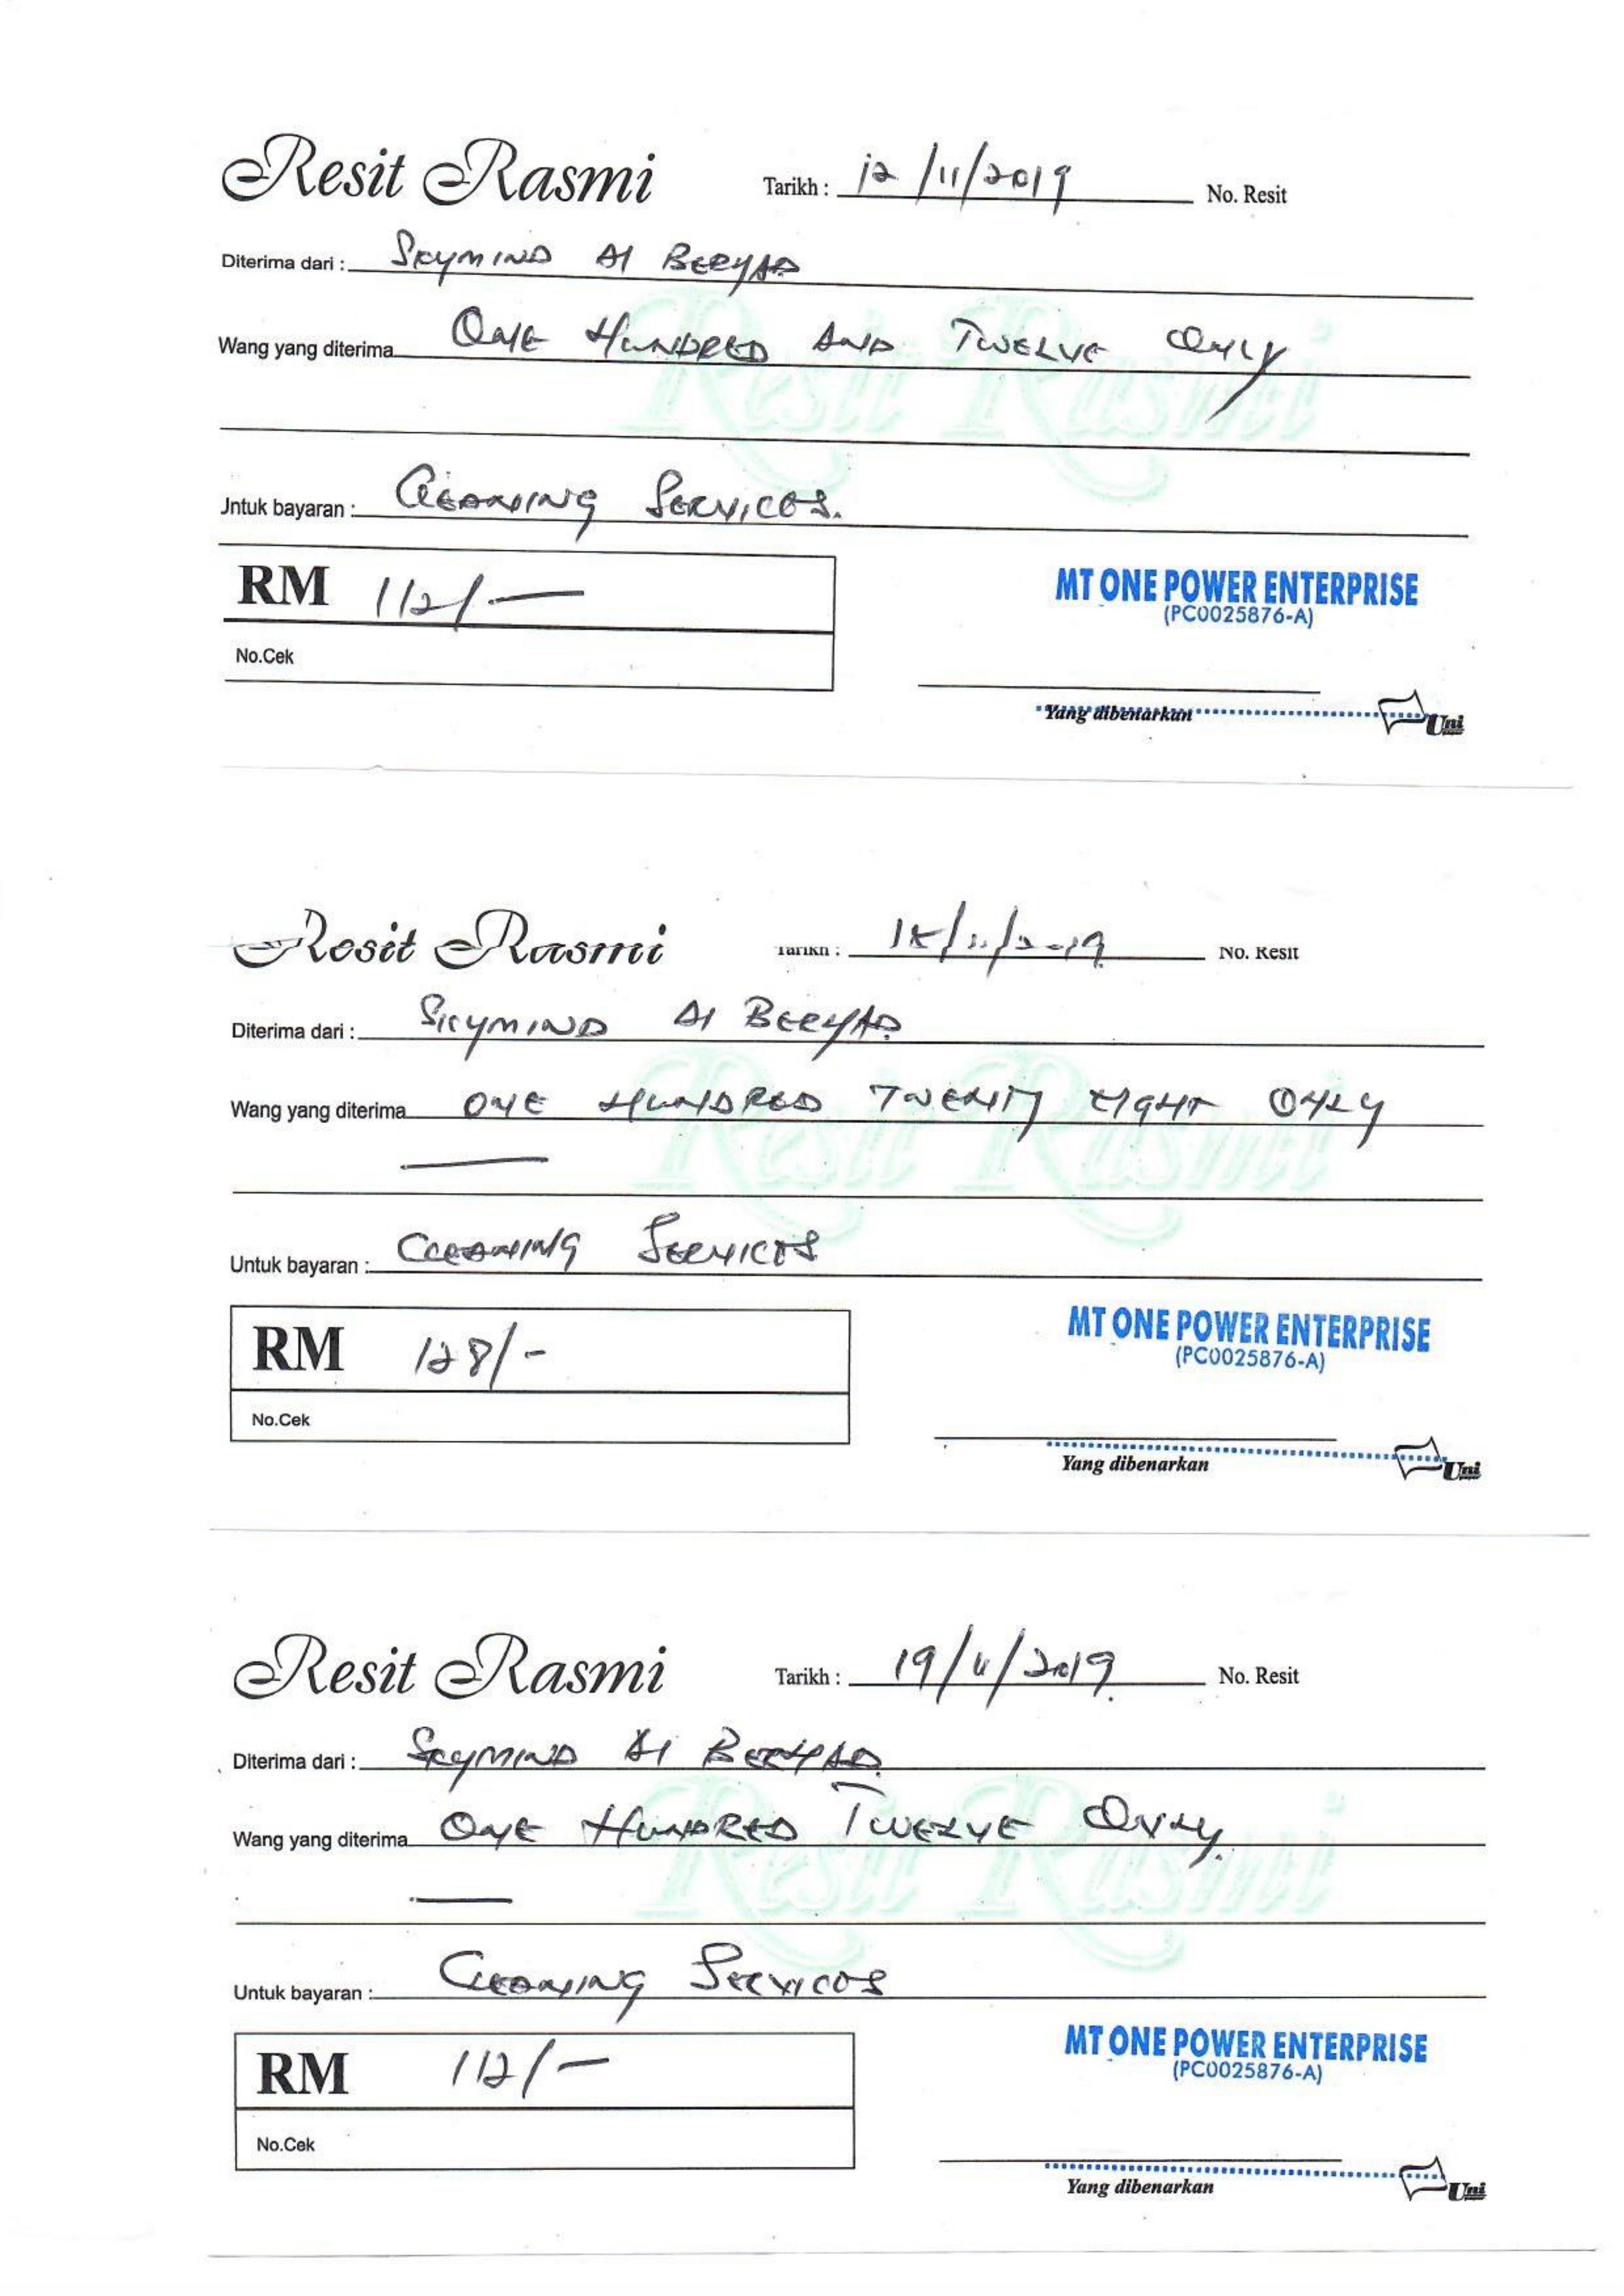 Resit Rasmi Tarikh : 12/11/2019 No. Resit
Diterima dari : SKYMIND AI BERHAD
Wang yang diterima ONE HUNDRED AND TWELVE ONLY
Jntuk bayaran : CLEANING SERVICES.
RM 112/-
MT ONE POWER ENTERPRISE
(PC0025876-A)
No.Cek
Yang dibenarkan
Uni
Resit Rasmi Tarikh : No. Resit
Diterima dari : SKYMIND AI BERHAD
Wang yang diterima ONE HUNDRED TWENTY EIGHT ONLY
Untuk bayaran : CLEANING SERVICES
RM 128/-
MT ONE POWER ENTERPRISE
(PC0025876-A)
No.Cek
Yang dibenarkan
Uni
Resit Rasmi Tarikh : 19/11/2019 No. Resit
Diterima dari : SKYMIND AI BERHAD
Wang yang diterima ONE HUNDRED TWELVE ONLY
Untuk bayaran : CLEANING SERVICES
RM 112/-
MT ONE POWER ENTERPRISE
(PC0025876-A)
No.Cek
Yang dibenarkan
Uni